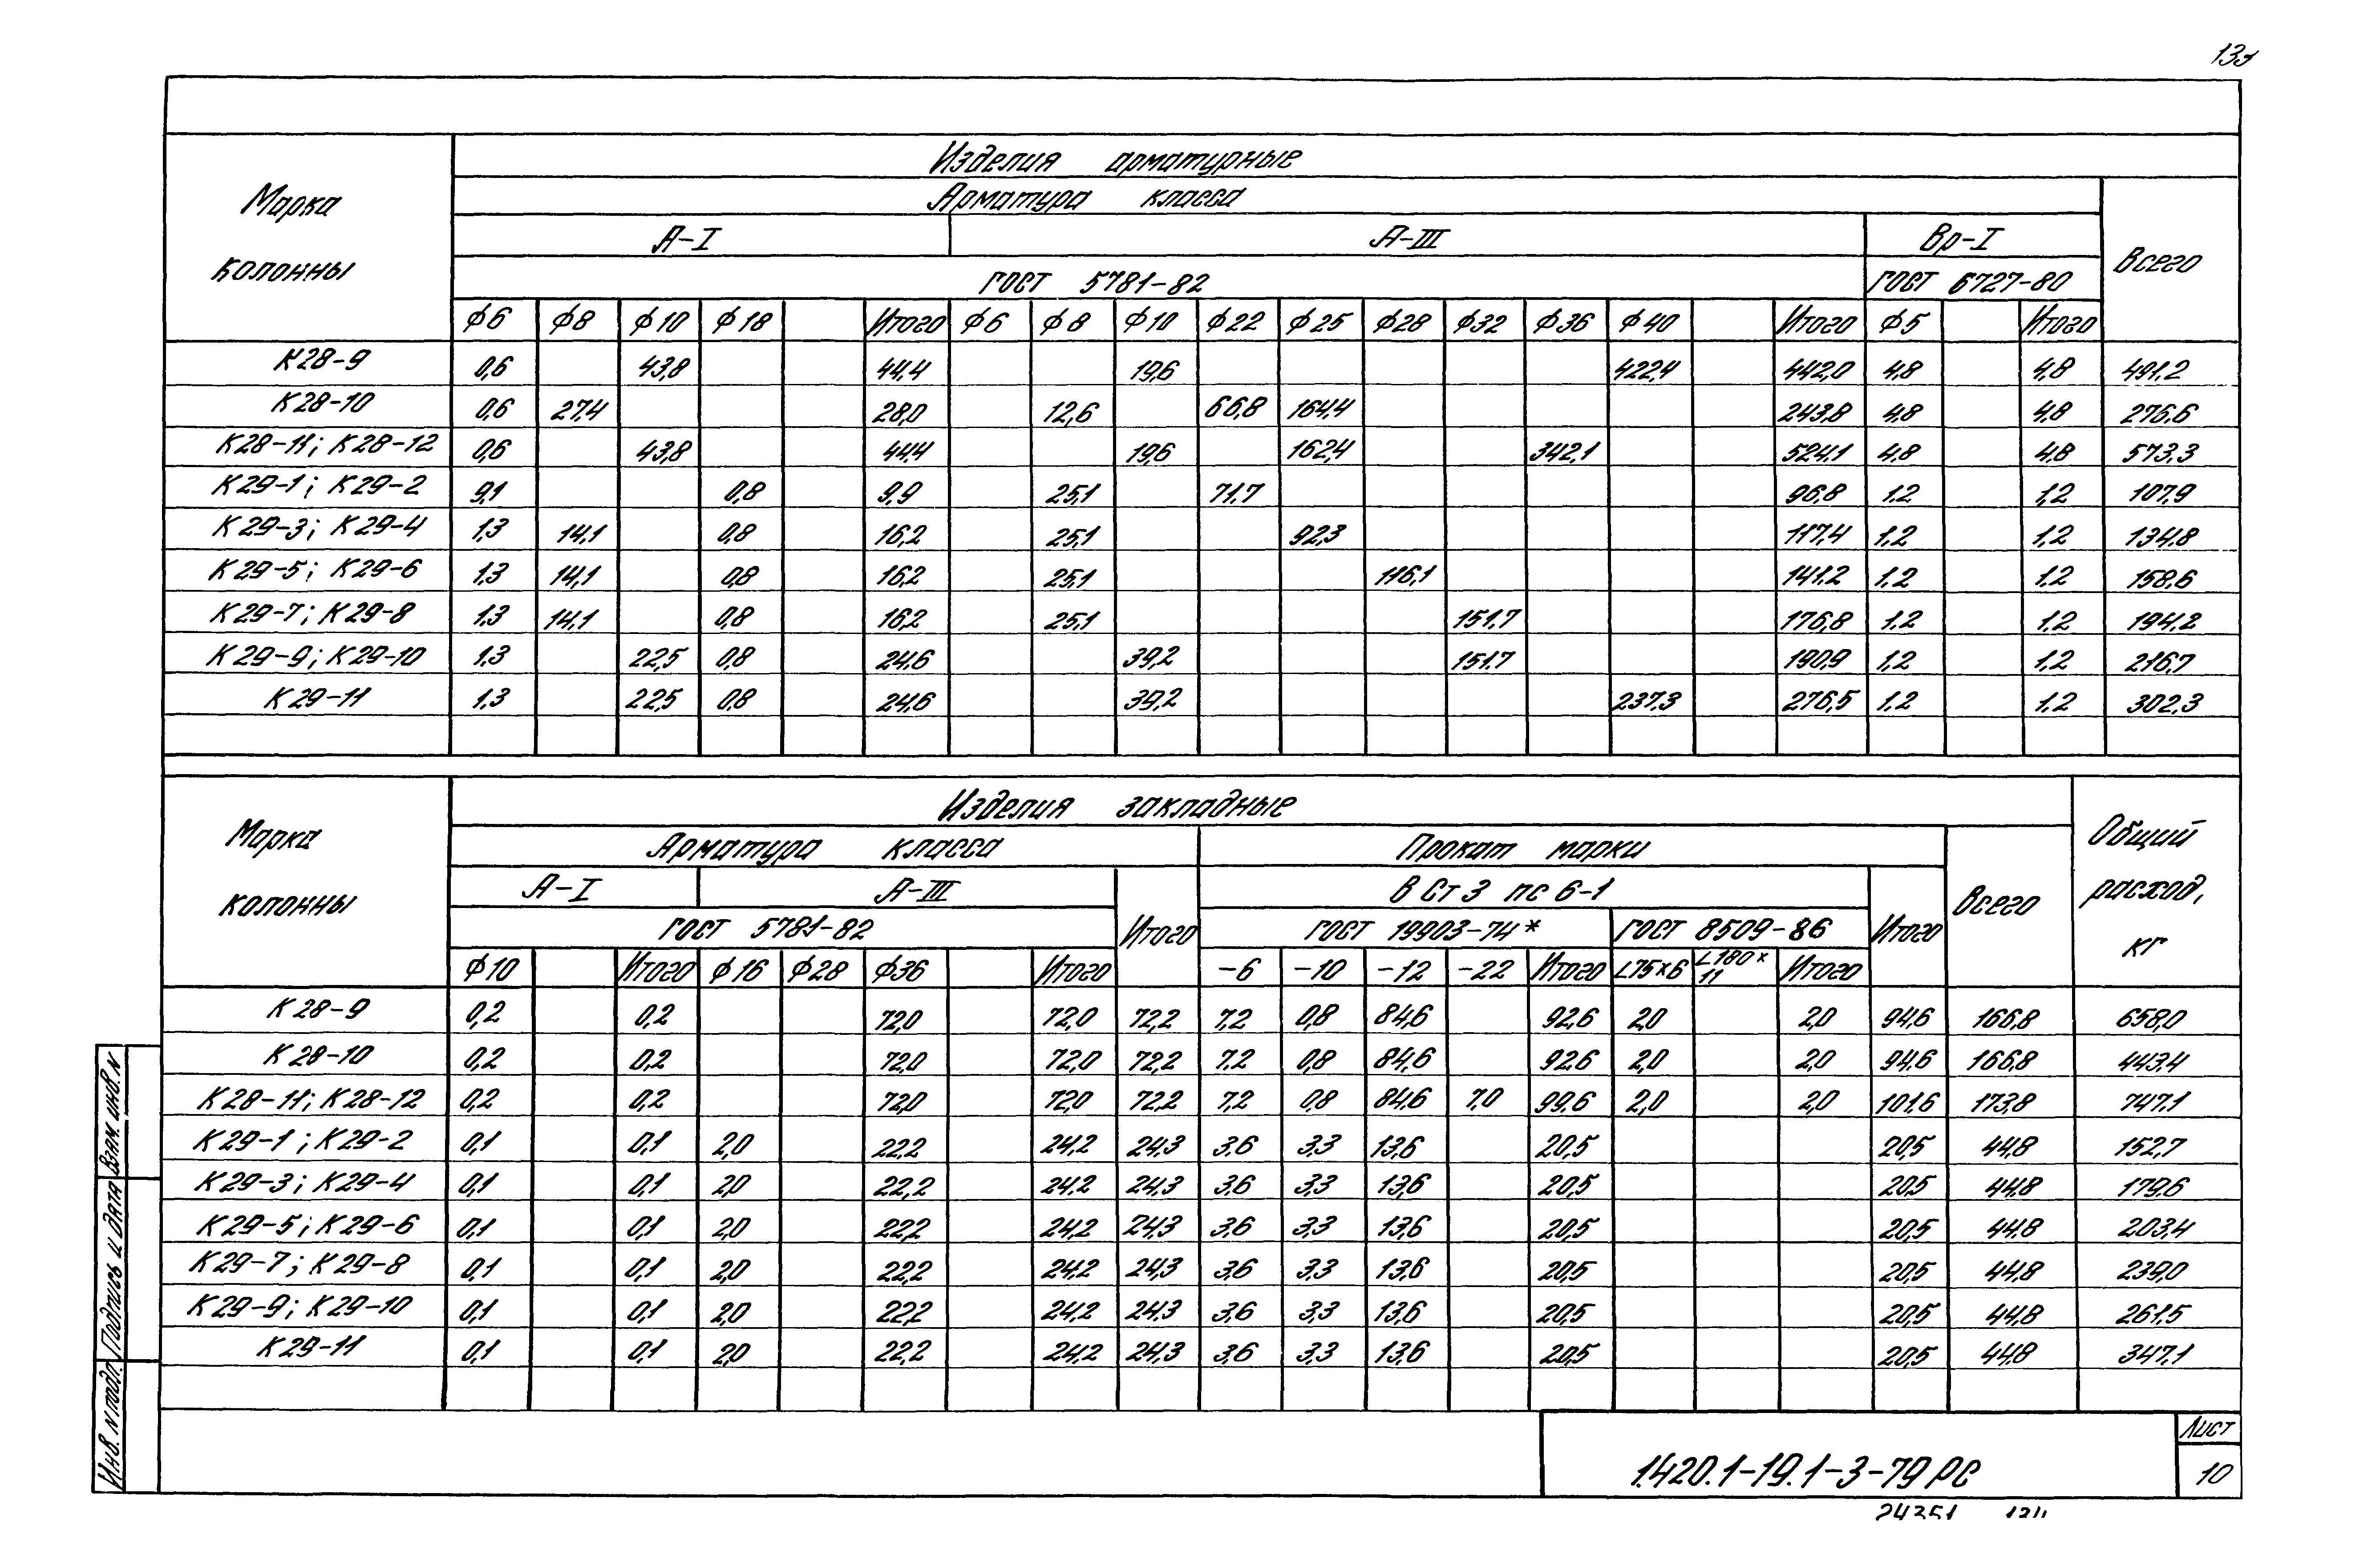 133
Изделия арматурные
Марка колонны
Арматура класса
Всего
А-I А-III Вр-I
ГОСТ 5781-82 ГОСТ 6727-80
ф6 ф8 ф10 ф18 Итого ф6 ф8 ф10 ф22 ф25 ф28 ф32 ф36 ф40 Итого ф5 Итого
К28-9 0,6 43,8 44,4 19,6 422,4 442,0 4,8 4,8 491,2
К28-10 0,6 27,4 28,0 12,6 66,8 164,4 243,8 4,8 4,8 276,6
К28-11; К28-12 0,6 43,8 44,4 19,6 162,4 342,1 524,1 4,8 4,8 573,3
К29-1; К29-2 9,1 0,8 9,9 25,1 71,7 96,8 1,2 1,2 107,9
К29-3; К29-4 1,3 14,1 0,8 16,2 25,1 92,3 117,4 1,2 1,2 134,8
К29-5; К29-6 1,3 14,1 0,8 16,2 25,1 116,1 141,2 1,2 1,2 158,6
К29-7; К29-8 1,3 14,1 0,8 16,2 25,1 151,7 176,8 1,2 1,2 194,2
К29-9; К29-10 1,3 22,5 0,8 24,6 39,2 151,7 190,9 1,2 1,2 216,7
К29-11 1,3 22,5 0,8 24,6 39,2 237,3 276,5 1,2 1,2 302,3
Изделия закладные
Марка колонны
Общий расход, кг
Арматура класса Прокат марки
Всего
А-I А-III Итого В Ст 3 пс 6-1 Итого
ГОСТ 5781-82 ГОСТ 19903-74* ГОСТ 8509-86
ф10 Итого ф16 ф28 ф36 Итого -6 -10 -12 -22 Итого L75×6 L180×11 Итого
К28-9 0,2 0,2 72,0 72,0 72,2 7,2 0,8 84,6 92,6 2,0 2,0 94,6 166,8 658,0
К28-10 0,2 0,2 72,0 72,0 72,2 7,2 0,8 84,6 92,6 2,0 2,0 94,6 166,8 443,4
К28-11; К28-12 0,2 0,2 72,0 72,0 72,2 7,2 0,8 84,6 7,0 99,6 2,0 2,0 101,6 173,8 747,1
К29-1; К29-2 0,1 0,1 2,0 22,2 24,2 24,3 3,6 3,3 13,6 20,5 20,5 44,8 152,7
К29-3; К29-4 0,1 0,1 2,0 22,2 24,2 24,3 3,6 3,3 13,6 20,5 20,5 44,8 179,6
К29-5; К29-6 0,1 0,1 2,0 22,2 24,2 24,3 3,6 3,3 13,6 20,5 20,5 44,8 203,4
К29-7; К29-8 0,1 0,1 2,0 22,2 24,2 24,3 3,6 3,3 13,6 20,5 20,5 44,8 239,0
К29-9; К29-10 0,1 0,1 2,0 22,2 24,2 24,3 3,6 3,3 13,6 20,5 20,5 44,8 261,5
К29-11 0,1 0,1 2,0 22,2 24,2 24,3 3,6 3,3 13,6 20,5 20,5 44,8 347,1
Взам. инв. N
Подпись и дата
Инв. N подл.
1.420.1-19.1-3-79РС
Лист
10
24351